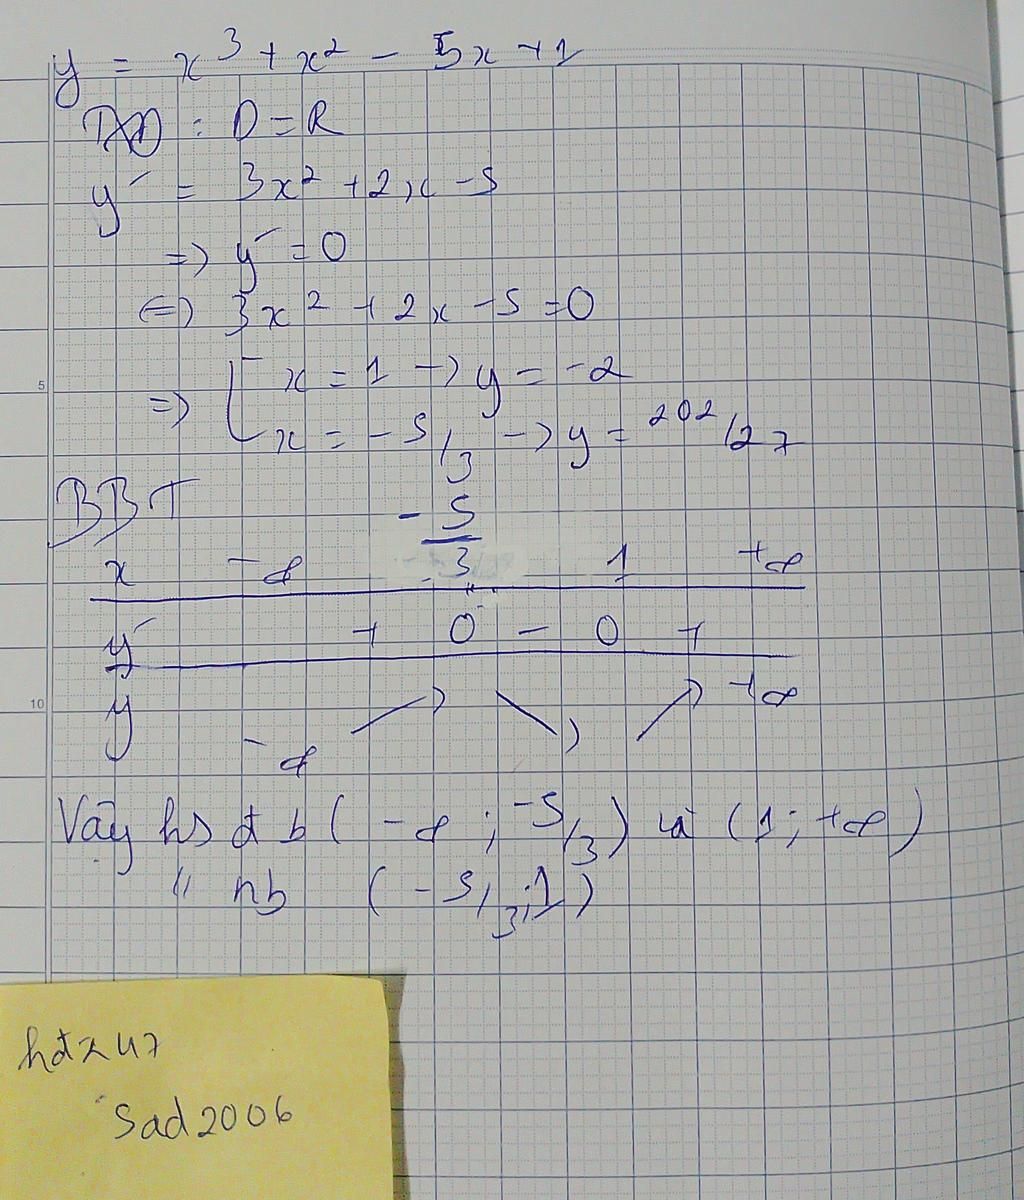 y = x³ + x² - 5x + 1
TXĐ : D = R
y' = 3x² + 2x - 5
=> y' = 0
<=> 3x² + 2x - 5 = 0
=> [ x = 1 -> y = -2
x = -5/3 -> y = 202/27
BBT
x -∞ -5/3 1 +∞
y' + 0 - 0 +
y -∞ ↗ ↘ ↗ +∞
Vậy hs đb (-∞ ; -5/3) và (1 ; +∞)
" nb (-5/3 ; 1)
5
10
hđz47
Sad2006